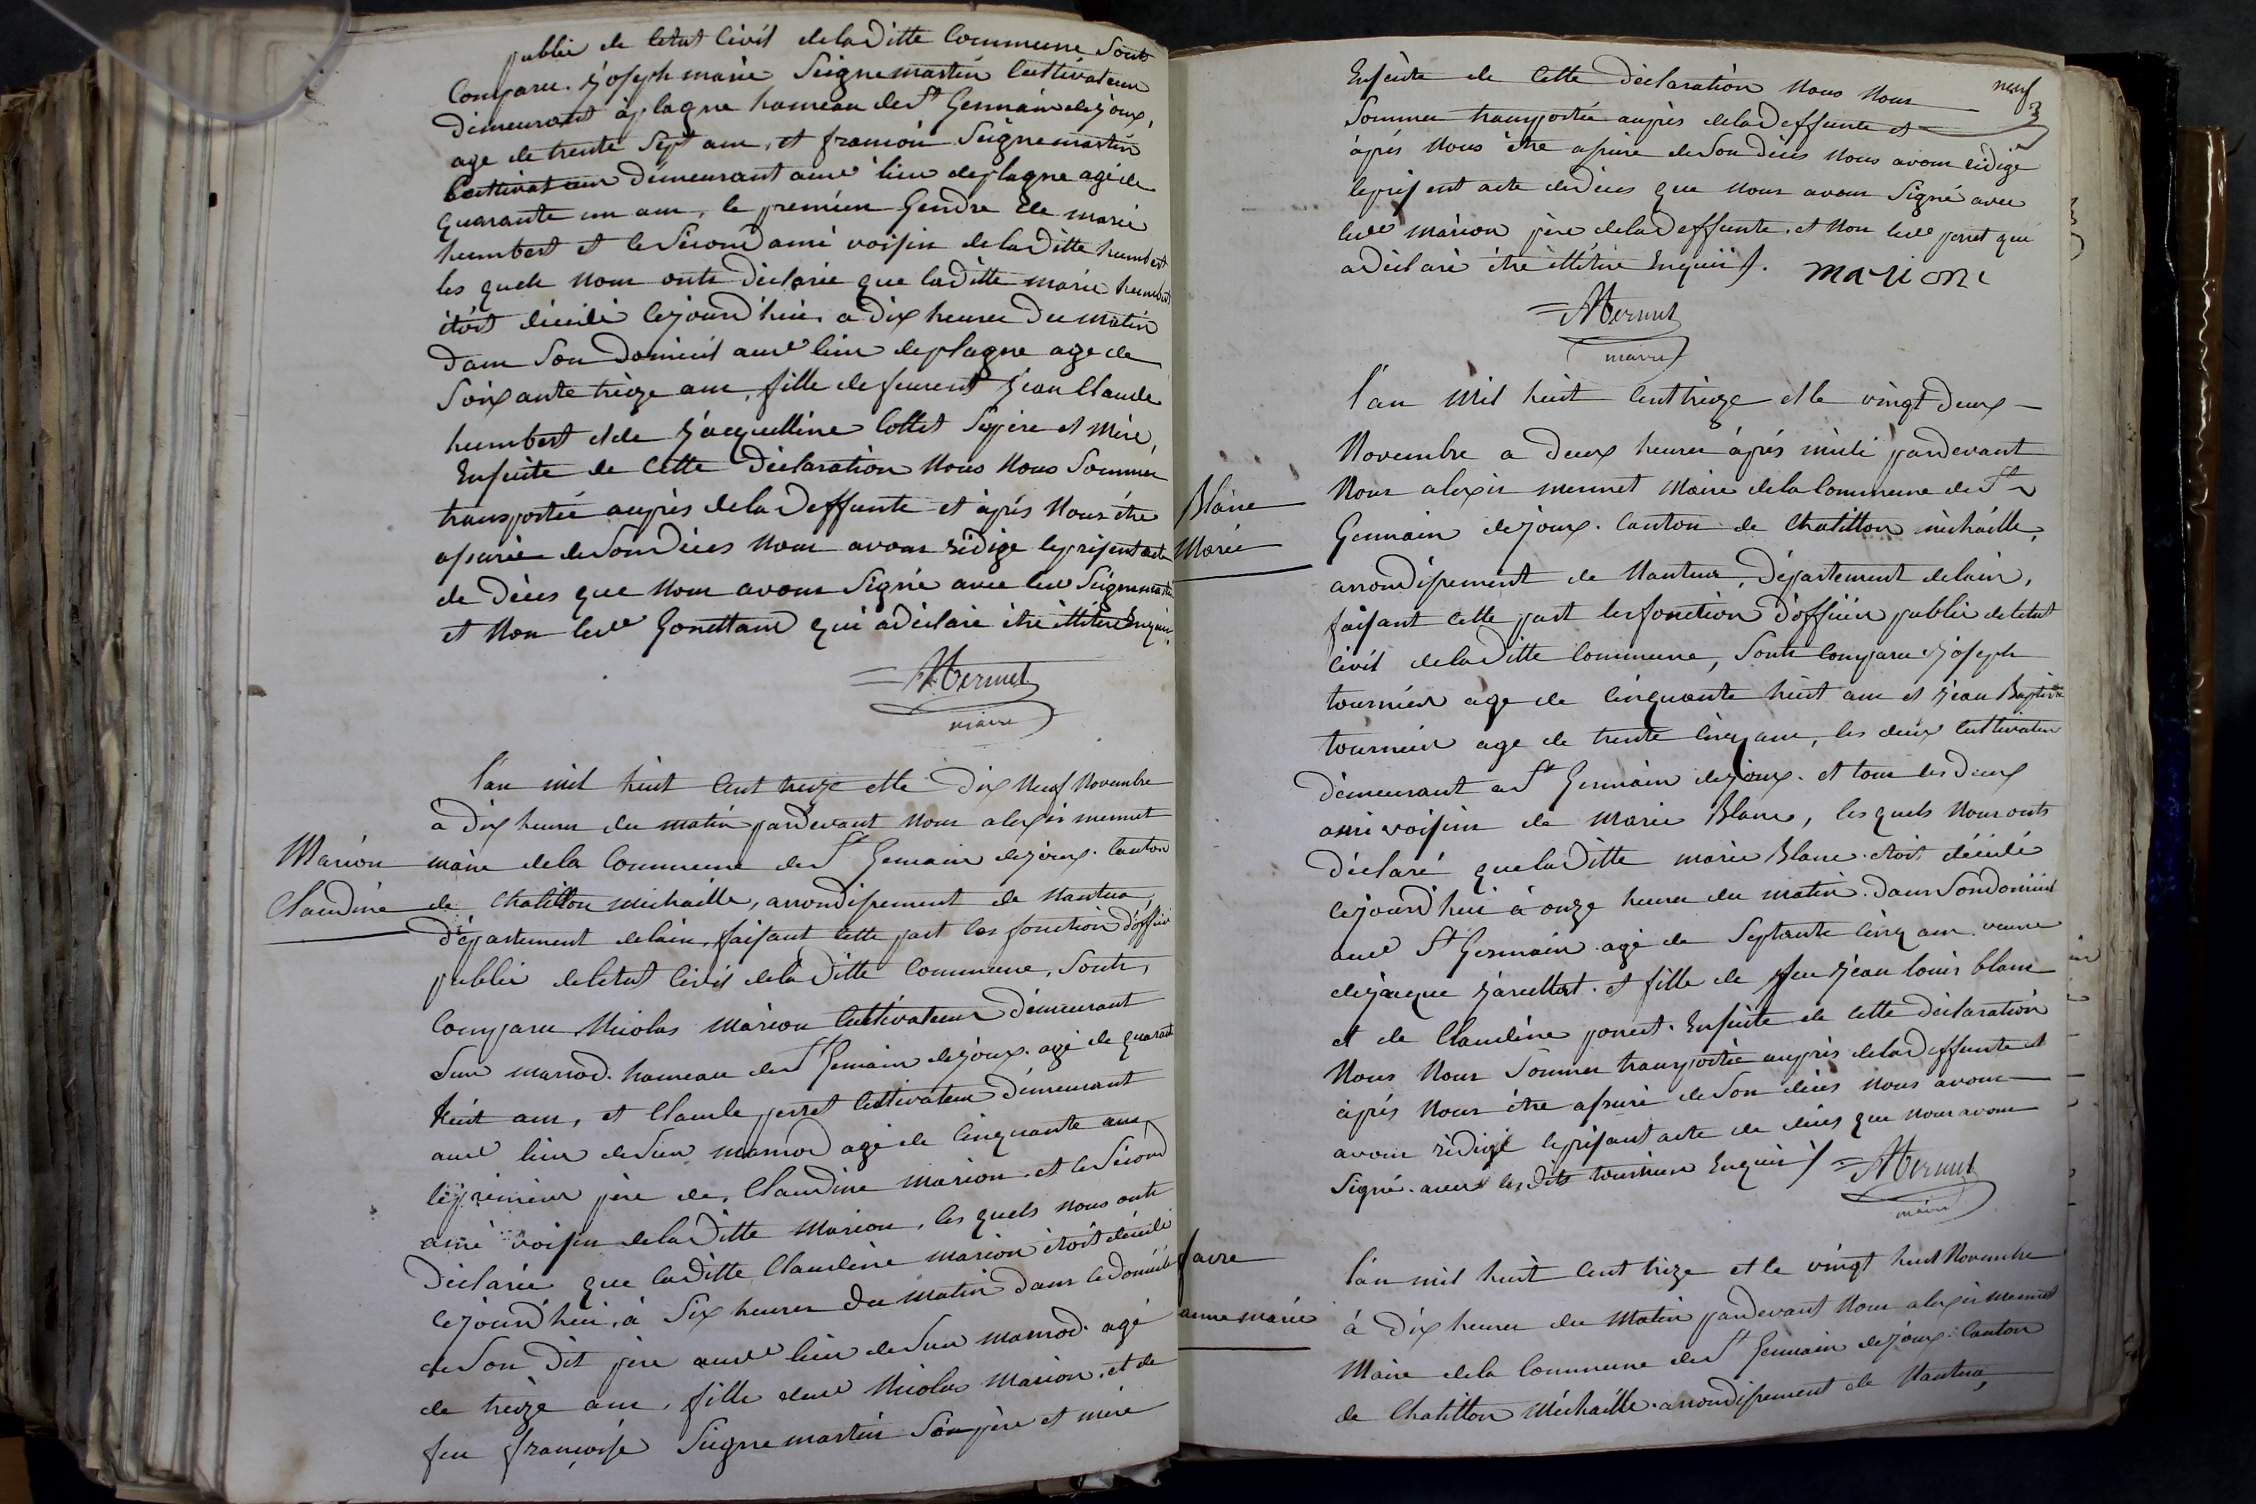 publié de letat Civil delaDitte Commune Sonts
Comparu. Joseph marie Seignemartin Cultivateur
demeurant à plagne hameau de St Germain dejoux,
age de trente Sept ans, et francois Seignemartin
Cultivateur demeurant audt lieu deplagne agé de
quarante un ans, le premier Gendre de marie
humbert et leSecond ami voisin de laDitte humbert
les quels nous onts declarée que laditte marie humbert
étoit décédé cejourd'hui, a dix heures Du matin
dans Son Domicil audt lieu deplagne age de
Soixante treize ans, fille de feurent Jean Claude
humbert et de Jacquelline Collet Sespère et Mère,
Ensuite de Cette Déclaration Nous Nous Sommes
transportée auprès delaDeffunte et après Nous être
assurée deSonDéces Nous avons rédigé leprésent acte
de Déces que Nous avons Signé avec ledt Seignemartin
et Non ledt Gonettand qui adéclaré être illitéré Enquis.
=AMermet
maire
l'an mil huit Cent treize etle Dix Neuf Novembre
à Dix heures du matin pardevant Nous alexis mermet
Marion
Claudine
maire dela Commune de St Germain dejoux. Canton
de Chatillon michaille, arrondissement de Nantua,
Département delain, faisant Cette part les fonction d'officier
publié deletat Civil delaDitte Commune, Sonts,
Comparu, Nicolas Marion Cultivateur Démeurant
Sur marnod. hameau de St Germain dejoux. agé de quarante
huit ans, et Claude perret Cultivateur Démeurant
audt lieu deSur marnod agé de Cinquante ans,
lepremier père de, Claudine Marion et leSécond
ami voisin delaDitte Marion, les quels nous onts
Déclarée que laditte Claudine marion étoit décédé
Cejourd'hui, à Six heures du matin dans ledomicile
deSon Dit père audt lieu deSur marnod. agé
de treize ans, fille dudt Nicolas Marion, et de
feu françoise Seignemartin Sonpère et mère
neuf
Ensuite de Cette Déclaration Nous Nous
Sommes transportée auprès delaDeffunte et
après Nous être assuré deSon déces Nous avons rédigé
leprésent acte dedéces que Nous avons Signé avec
ledt Marion père delaDeffunte. et Non ledt perret qui
adéclaré être illitéré Enquis.
marion
=AMermet
maire
Blanc
Marie
l'an Mil huit Cent treize etle vingt Deux
Novembre a Deux heures après midi pardevant
Nous alexis mermet Maire dela Commune de St
Germain dejoux. Canton de Chatillon michaille,
arrondissement de Nantua, Département delain,
faisant Cette part lesfonction d'officier publié deletat
Civil delaDitte Commune, Sonts Comparu Joseph
tournier age de Cinquante huit ans et Jean Baptiste
tournier age de trente Cinq ans, les deux Cultivateur
demeurant a St Germain dejoux. et tous les Deux
ami voisins de Marie Blanc, les quels Nous onts
déclaré quelaDitte marie Blanc étoit décédé
cejourd'hui à onze heures du matin. dans Sondomicil
audt St Germain. agé de Septante Cinq ans veuve
dejacque Jarcellat. et fille de feu Jean louis blanc
et de Claudine poncet. Ensuite de Cette déclaration
Nous Nous Sommes transportée auprès delaDeffunte et
après Nous être assuré deSon déces Nous avons
avons rédigé leprésant acte de déces que nous avons
Signé. avec lesdits tournier Enquis / =AMermet
maire
favre
anne marie
l'an mil huit Cent treize et le vingt huit Novembre
à Dix heures du Matin pardevant Nous alexis Mermet
Maire dela Commune de St Germain dejoux. Canton
de Chatillon Michaille. arrondissement de Nantua,